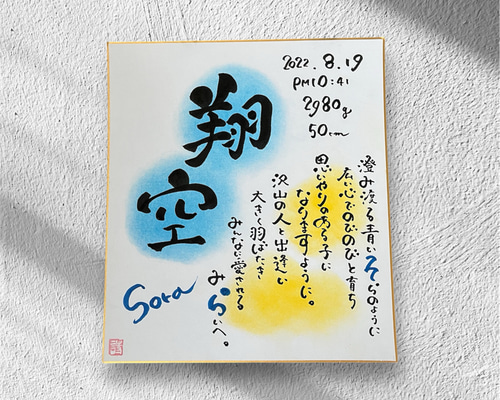 翔空
Sora
2022.8.19
PM10:41
2980g
50cm
澄み渡る青いそらのように
広い心でのびのびと育ち
思いやりのある子に
なりますように。
沢山の人と出逢い
大きく羽ばたき
みんなに愛される
みらいへ。